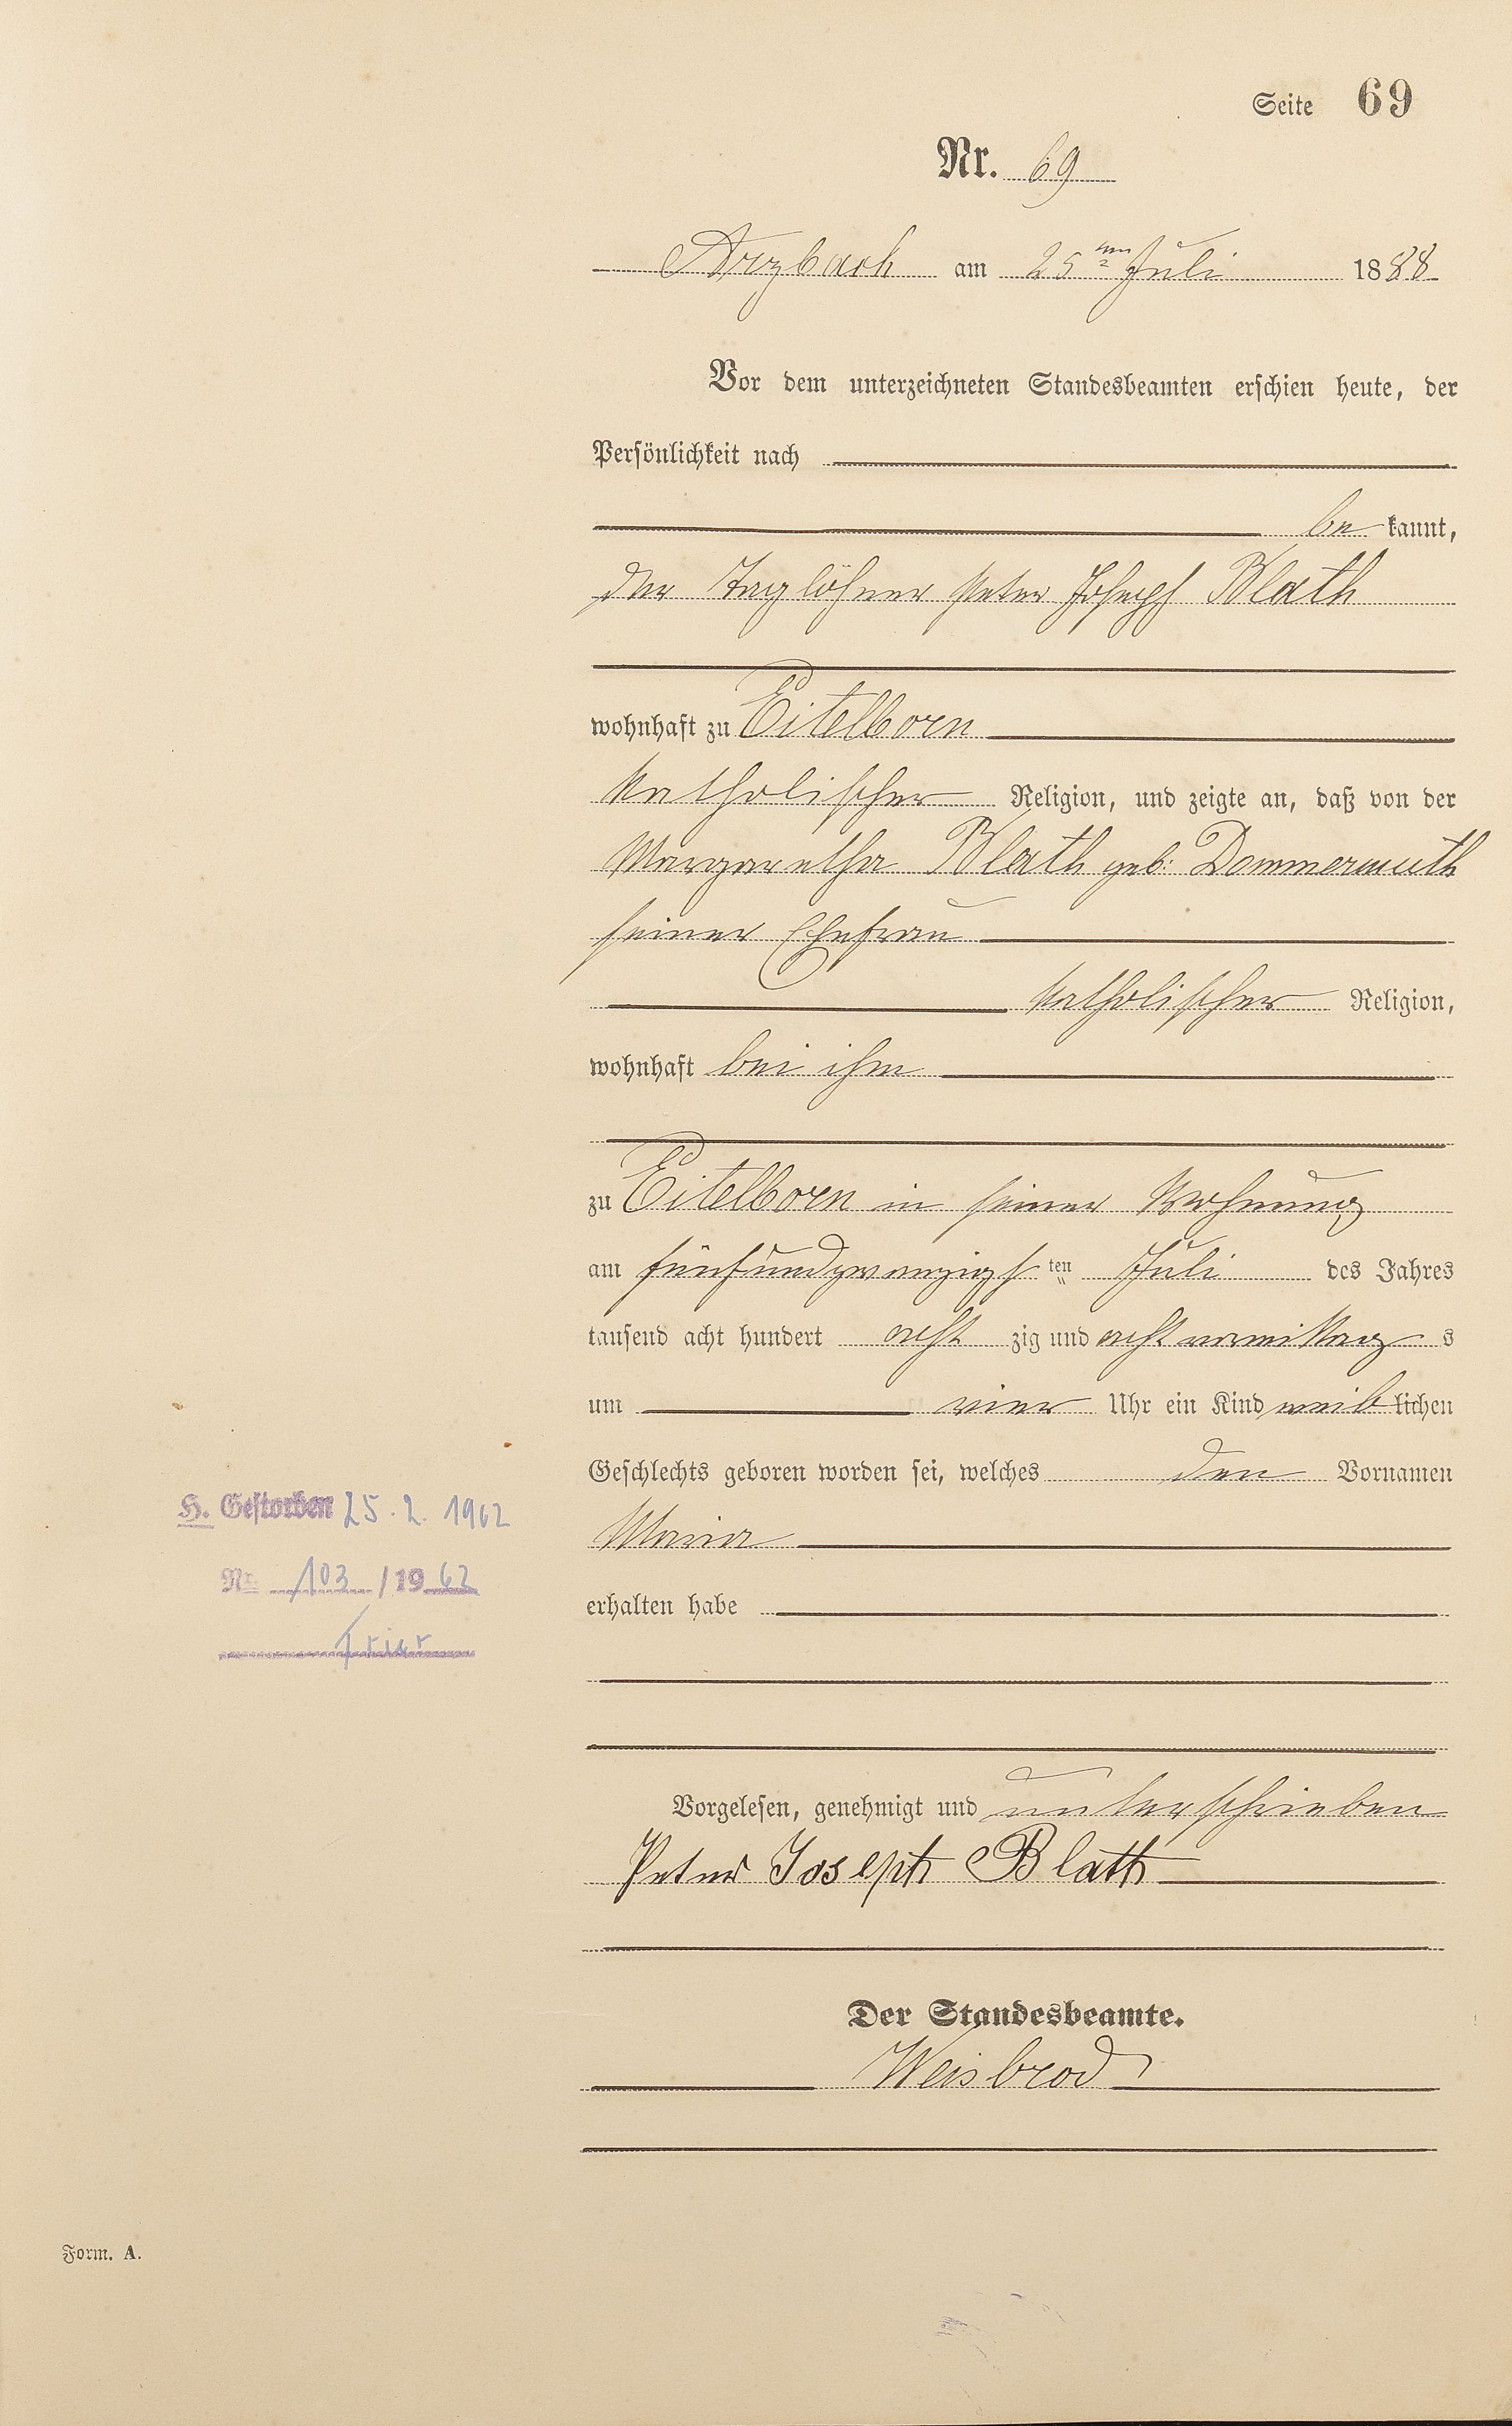 Seite 69
Nr. 69
Arzbach am 25ten Juli 1888
Vor dem unterzeichneten Standesbeamten erschien heute, der
Persönlichkeit nach
be kannt,
der Taglöhner Peter Joseph Blath
wohnhaft zu Eitelborn
katholischer Religion, und zeigte an, daß von der
Margaretha Blath geb: Dommermuth
seiner Ehefrau
katholischer Religion,
wohnhaft bei ihm
zu Eitelborn in seiner Wohnung
am fünfundzwanzigs ten Juli des Jahres
tausend acht hundert acht zig und acht vormittag s
um vier Uhr ein Kind weiblichen
Geschlechts geboren worden sei, welches den Vornamen
Maria
erhalten habe
H. Gestorben 25.2.1962
Nr. 103 / 1962
Trier
Vorgelesen, genehmigt und unterschrieben
Peter Joseph Blath
Der Standesbeamte.
Weisbrod
Form. A.